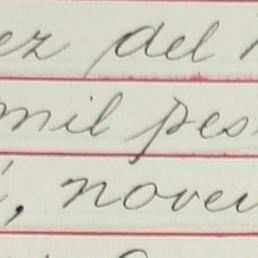 ez del
mil pes
, novei